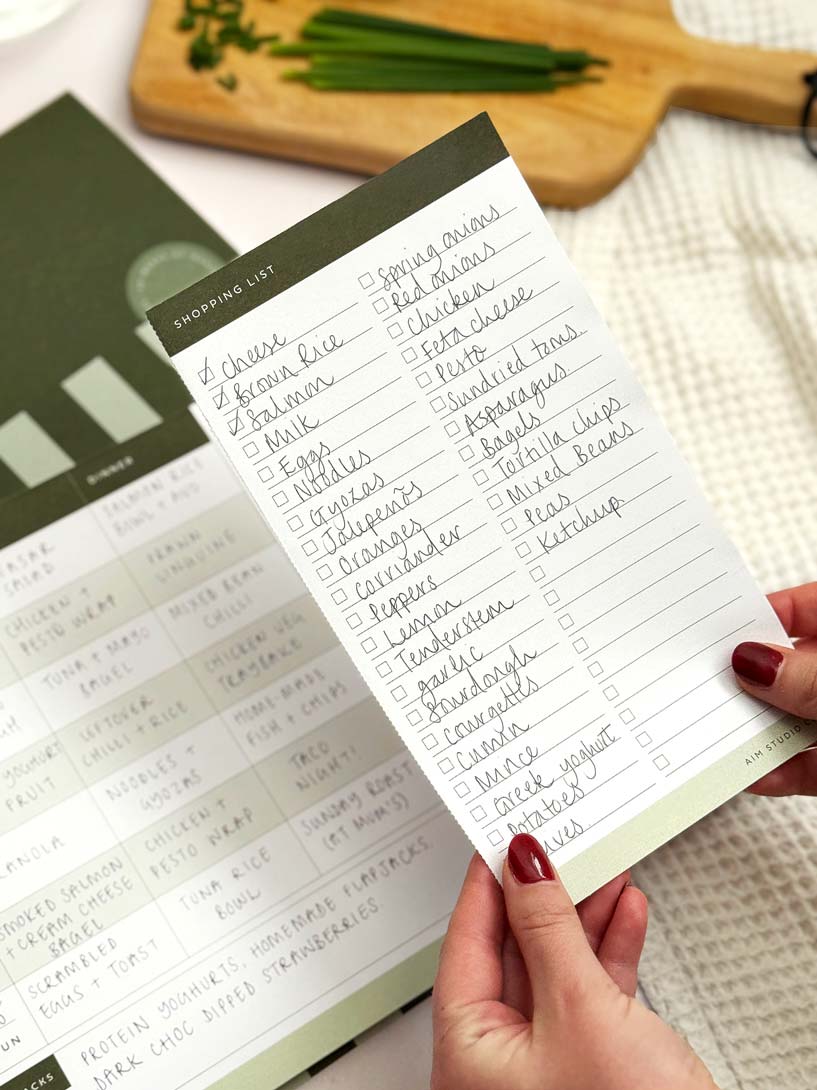 SHOPPING LIST
Cheese
Brown Rice
Salmon
Milk
Eggs
Noodles
Gyozas
Jalepeños
Oranges
Corriander
Peppers
Lemon
Tenderstem
garlic
Sourdough
Courgettes
Cumin
Mince
Greek yoghurt
Potatoes
Spring onions
Red onions
Chicken
Feta cheese
Pesto
Sundried toms.
Asparagus.
Bagels
Tortilla chips
Mixed Beans
Peas
Ketchup.
AIM STUDIO
DINNER
SALMON RICE
SALAD
PRAWN
LINGUINE
CHICKEN +
PESTO WRAP
MIXED BEAN
CHILLI
TUNA + MAYO
BAGEL
CHICKEN VEG
TRAYBAKE
YOGHURT
FRUIT
LEFTOVER
CHILLI + RICE
HOME-MADE
FISH + CHIPS
NOODLES +
GYOZAS
TACO
NIGHT!
CHICKEN +
PESTO WRAP
SUNDAY ROAST
(AT MUM'S)
SMOKED SALMON
+ CREAM CHEESE
BAGEL
TUNA RICE
BOWL
SCRAMBLED
EGGS + TOAST
PROTEIN YOGHURTS, HOMEMADE FLAPJACKS.
DARK CHOC DIPPED STRAWBERRIES.